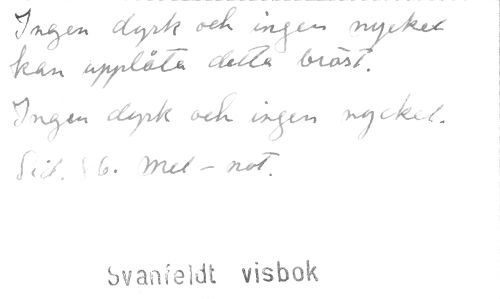 Ingen dyrk och ingen nyckel
kan upplåta detta bröst.
Ingen dyrk och ingen nyckel.
Sid. 86. Mel-not.
Svanfeldt visbok